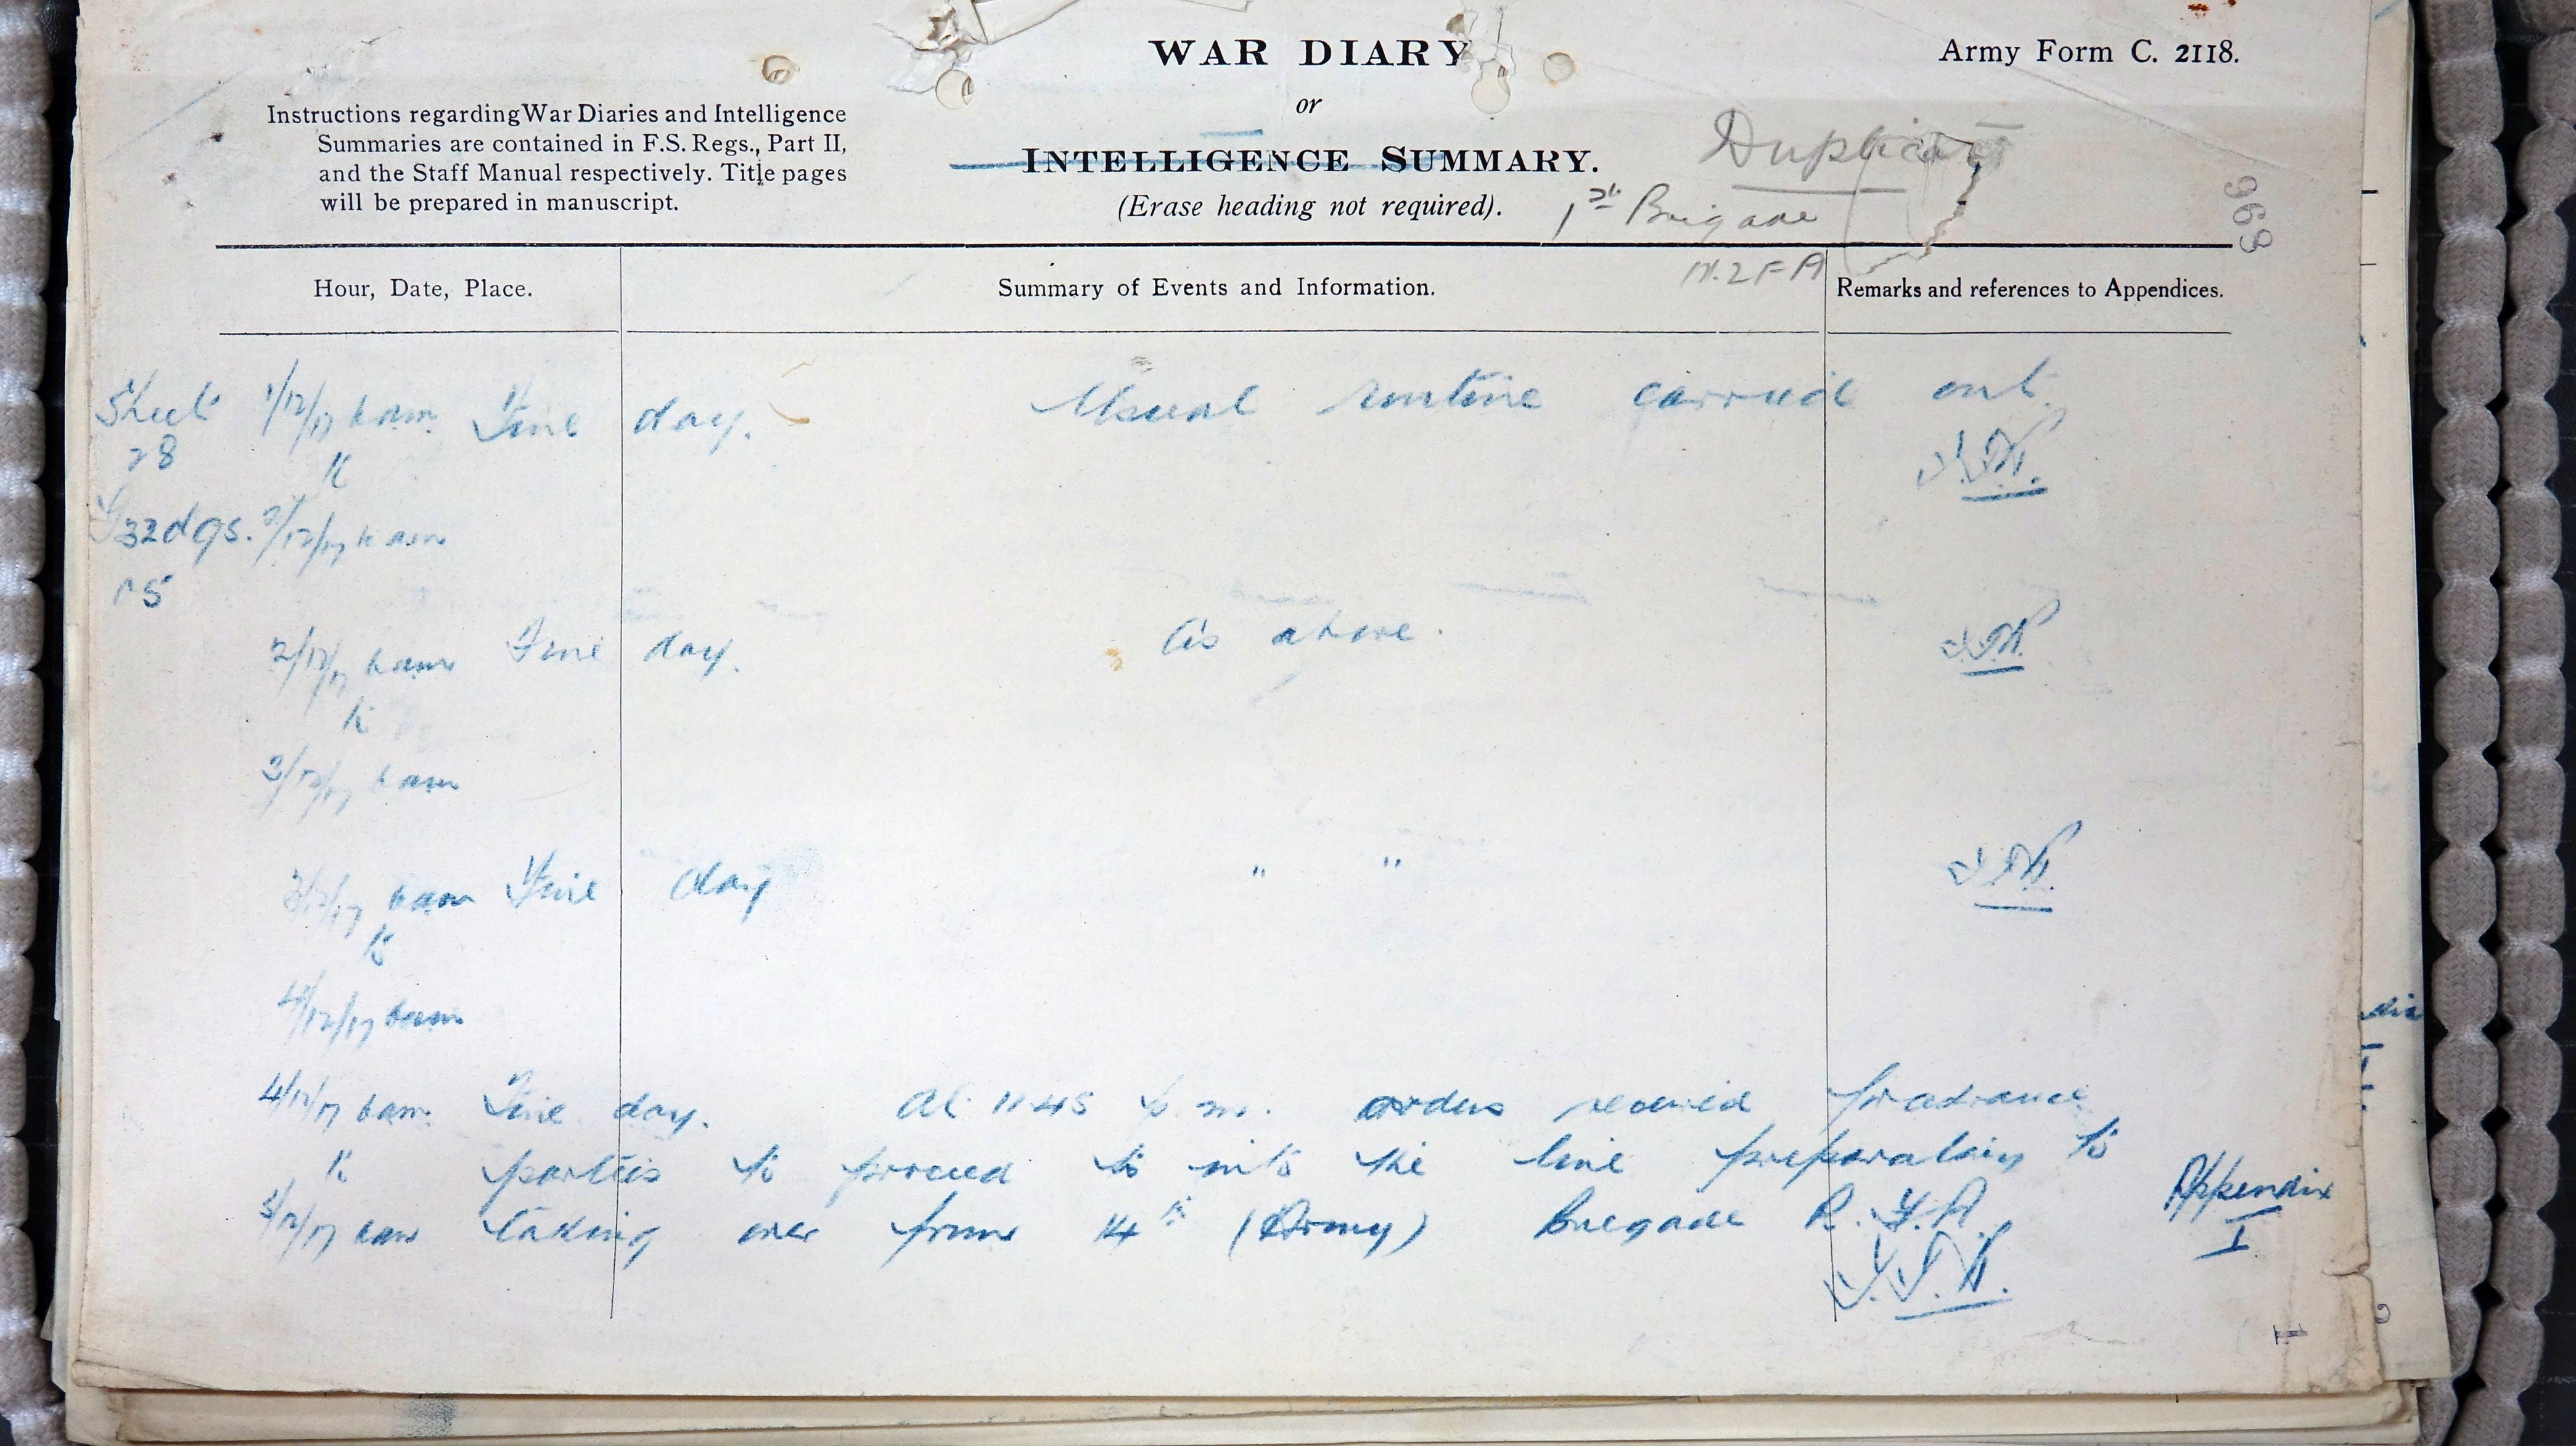 WAR DIARY
Army Form C. 2118.
or
Instructions regarding War Diaries and Intelligence
Summaries are contained in F.S. Regs., Part II,
and the Staff Manual respectively. Title pages
will be prepared in manuscript.
INTELLIGENCE SUMMARY.
(Erase heading not required).
Duplicate
1st Brigade
N.Z.F.A
969
Hour, Date, Place.
Summary of Events and Information.
Remarks and references to Appendices.
Sheet 1/12/17 6 am Fine day. Usual routine carried out.
28 to
2/12/17 6 am
2/12/17 6 am Fine day. As above.
to
3/12/17 6 am
3/12/17 6 am Fine day " "
to
4/12/17 6 am
4/12/17 6 am. Fine day. At 11.45 p.m. orders received for advance
to parties to proceed to into the line preparatory to
5/12/17 6 am taking over from 14th (Army) Brigade R.F.A.
Appendix
I
1